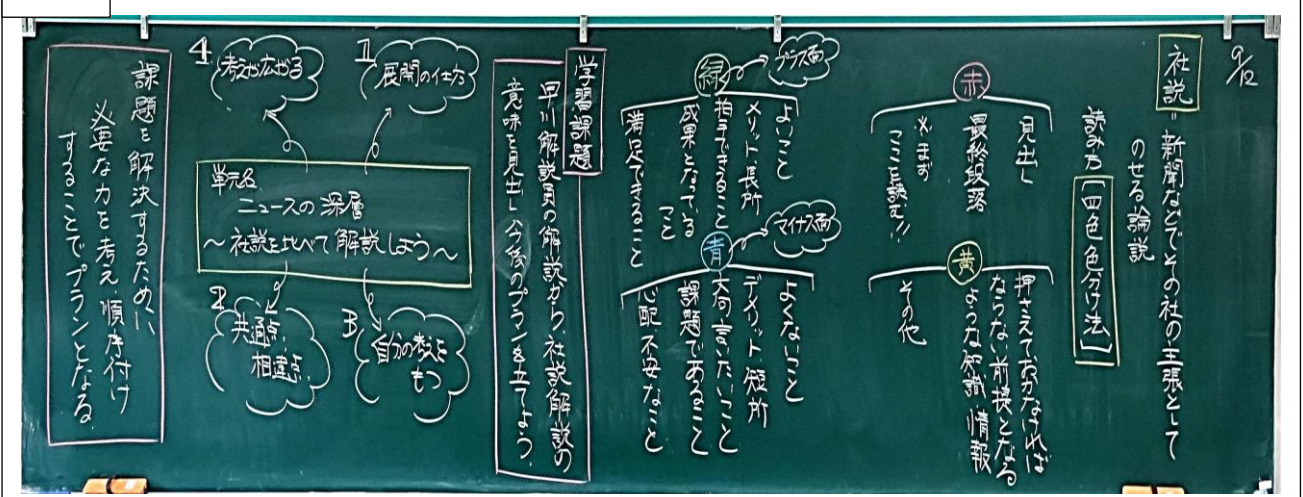 9/12
社説=新聞などでその社の主張として
のせる論説
読み方【四色色分け法】
赤
見出し
最終段落
※まず
ここを読む!!
黄
押さえておかなければ
ならない前提となる
ような知識 情報
その他
緑
プラス面
よいこと
メリット、長所
拍手できること
成果となっている
こと
満足できること
青
マイナス面
よくないこと
デメリット 短所
文句言いたいこと
課題であること
心配 不安なこと
学習課題
早川解説員の解説から、社説解説の
意味を見出し今後のプランを立てよう。
1
展開の仕方
4
考えが広がる
単元名
ニュースの深層
〜社説を比べて解説しよう〜
2
共通点、
相違点、
3
自分の考えを
もつ
課題を解決するために、
必要な力を考え、順序付け
することでプランとなる。